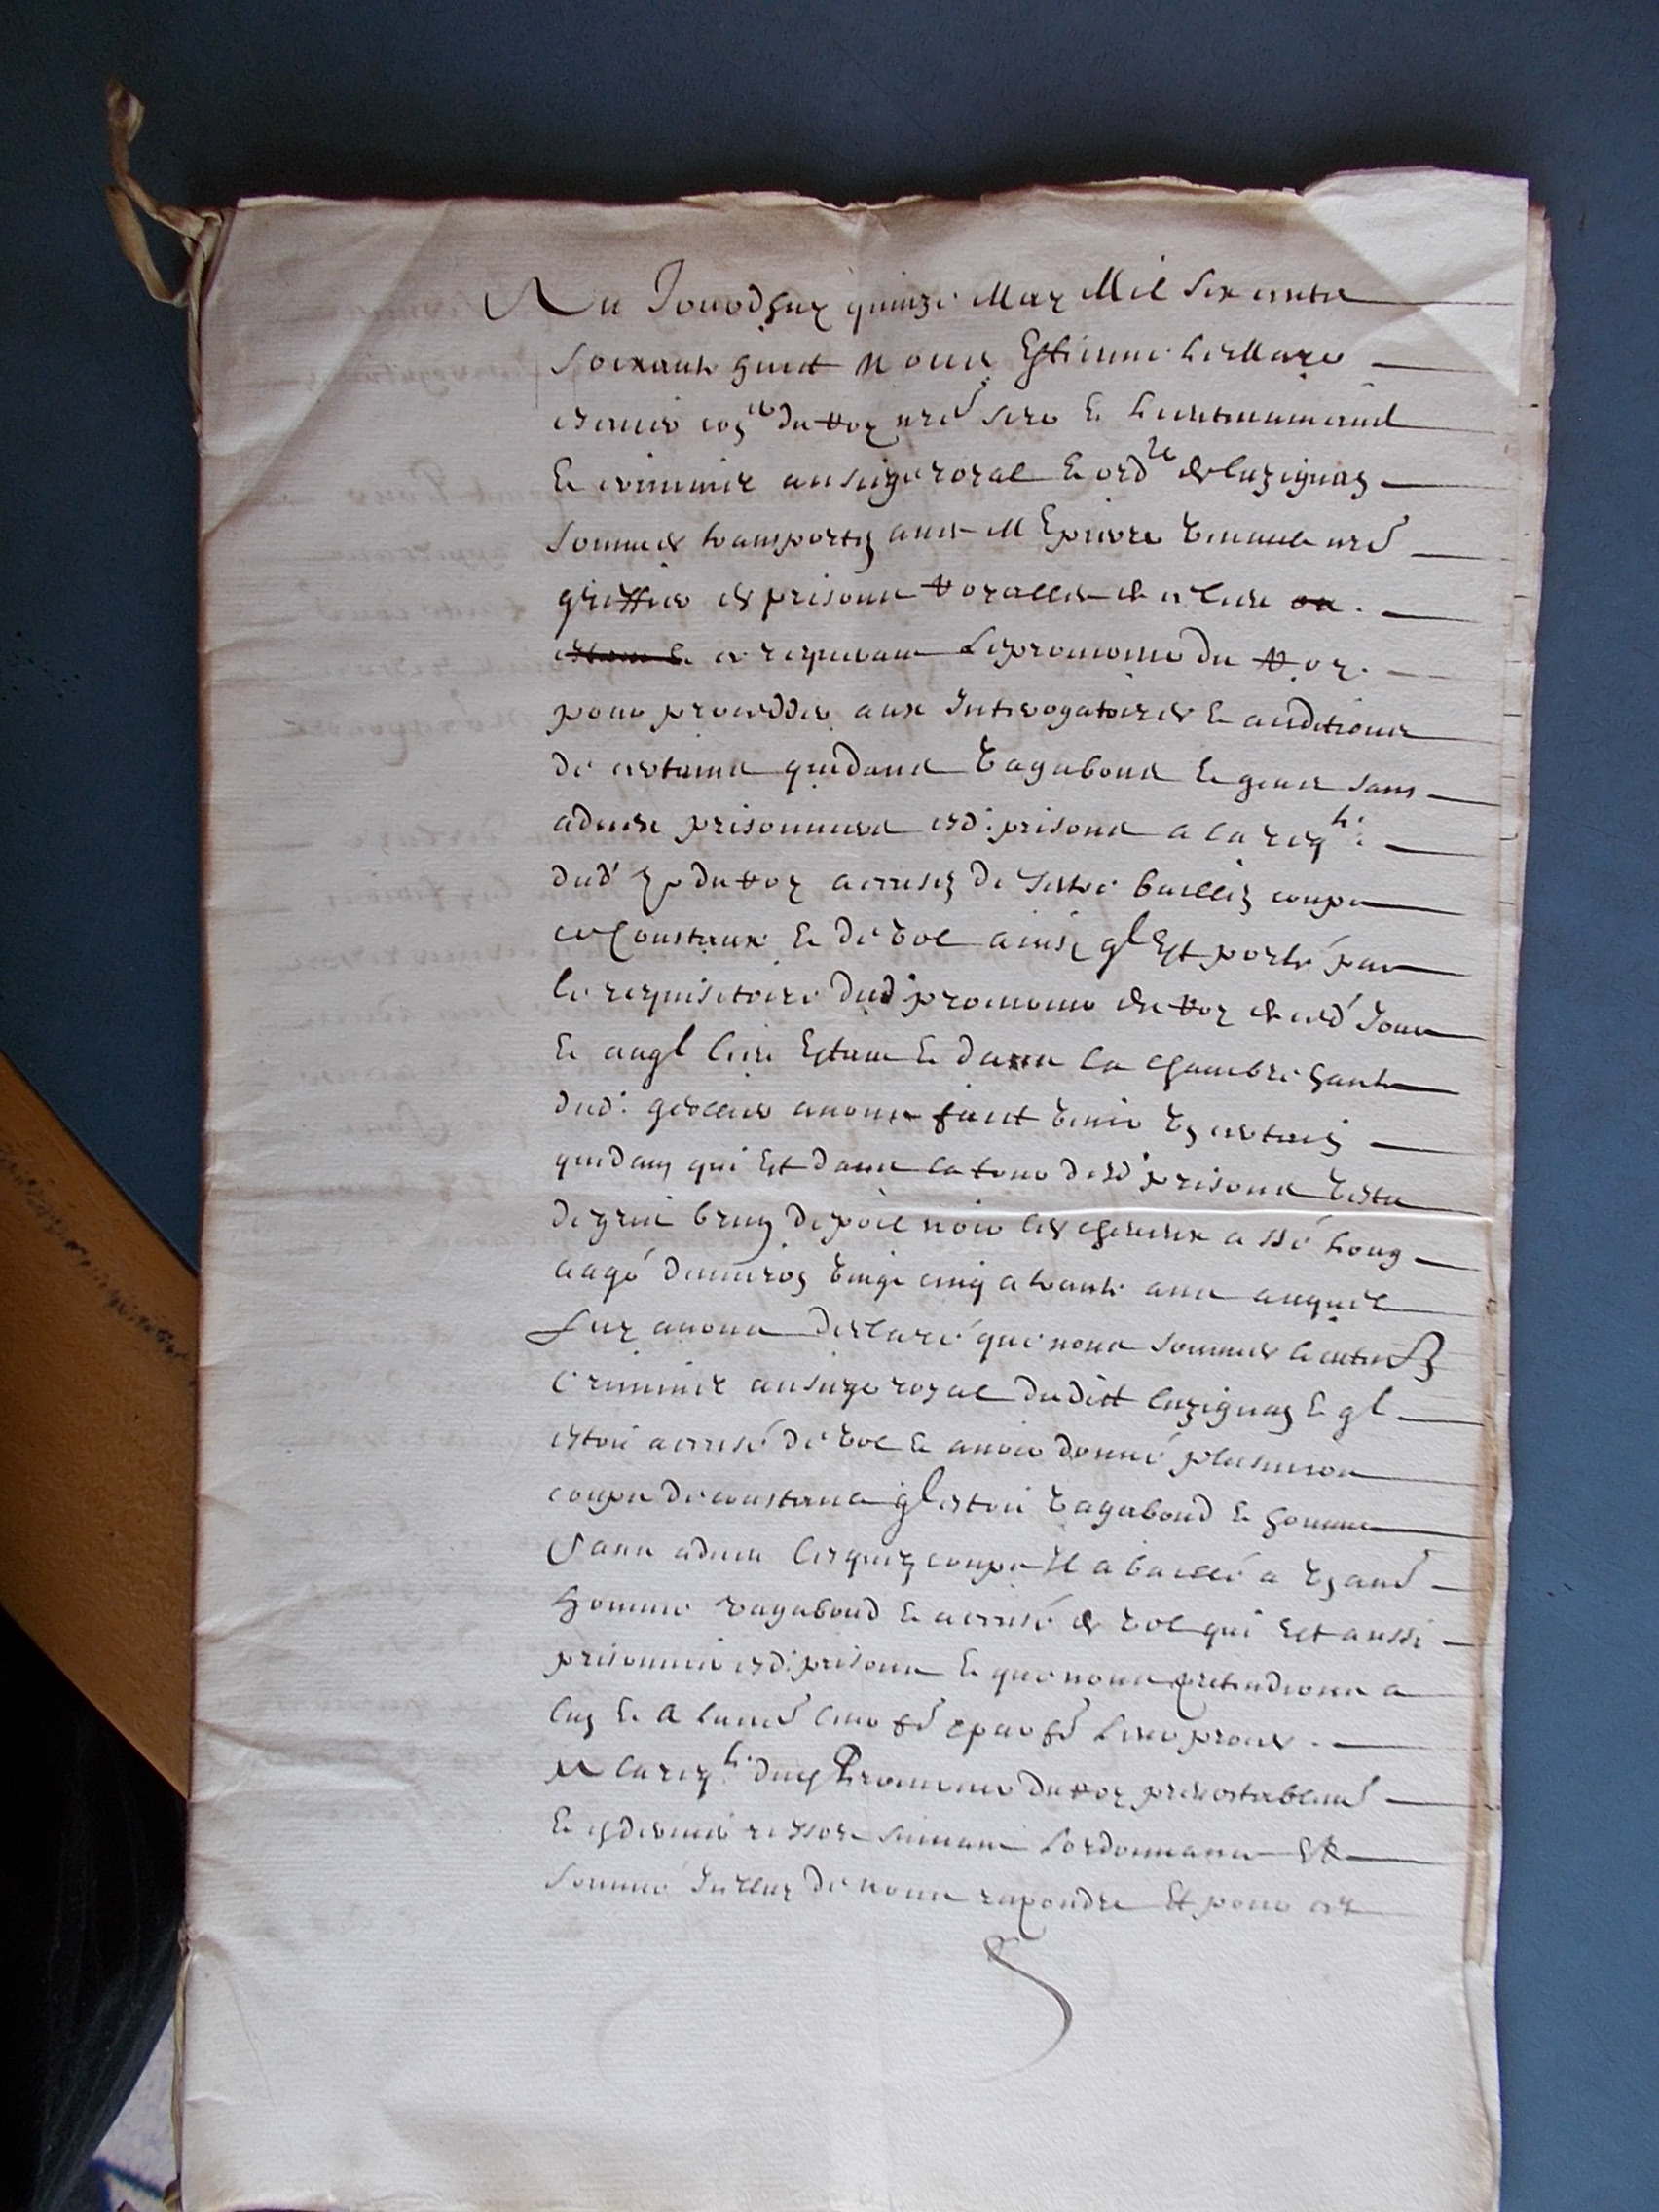 Au Jourdhuy quinze May Mil six cents
soixante huit Nous Estienne
escuier con^er du Roy nre sire & Lieutenant
& criminel au siege royal & ord^re de Luzignan
sommes transportez avec M
greffier es prisons Royalles de ce lieu
ce requerant Le procureur du Roy
pour procedder aux Interrogatoires & auditions
de certains quidans vagabons & gens sans
adveu prisonniers esd. prisons a la req^te
dud p du Roy accusez de sestre baillez coups
de Cousteaux & de vol ainsy ql Est porté par
le requisitoire dud procureur du Roy de ced Jour
& auql lieu Estant & dans la chambre haute
dud. geollier avons fait venir Un certain
quidam qui Est dans la tour desd prisons vestu
de gris brun de poil noir les cheveux assé Long
aagé denviron vingt cinq a trante ans auquel
Luy avons desclaré que nous sommes Lieutenant
Criminel au siege royal duditt Luzignan & ql
estoit accusé de vol & avoir donné plusieurs
coups de cousteaux ql estoit vagabond & homme
Sans adveu lesquelz coups Il a baillé a Un aud
homme vagabond & accusé de vol qui Est aussi
prisonnier esd. prisons & que nous pretendions a
luy & A laud leur fe & parfe Leur proces
A la req^te dud Procureur du Roy prevostablement
& en dernier ressort suivant Lordonnance Et
sommé Icelluy de nous repondre Et pour cet